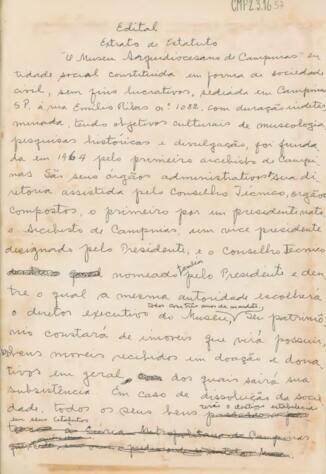 CMP2.3.16 57
Edital
Extrato de Estatuto
"O Museu Arquidiocesano de Campinas" en
tidade social constituida em forma de sociedade
civil, sem fins lucrativos, sediada em Campinas
SP. á rua Emilio Ribas nº 1082, com duração indeter
minada, tendo objetivos culturais de museologia,
pesquisas históricas e divulgação, foi funda
da em 1964 pelo primeiro arcebispo de Campi
nas São seus órgãos administrativos sua di
retoria assistida pelo Conselho Técnico, orgãos
compostos, o primeiro por um presidente nato
o Arcebispo de Campinas, um vice presidente
designado pelo Presidente, e o Conselho Técnico
nomeado pelo Presidente e den
tre o qual a mesma autoridade escolherá
o diretor executivo do Museu, Seu patrimô
com três anos de mandato,
nio constará de imoveis que virá possuir,
bens moveis recebidos em doação e dona
tivos em geral, dos quais sairá sua
subsistência. Em caso de dissolução da socie
dade, todos os seus bens
em seus estatutos